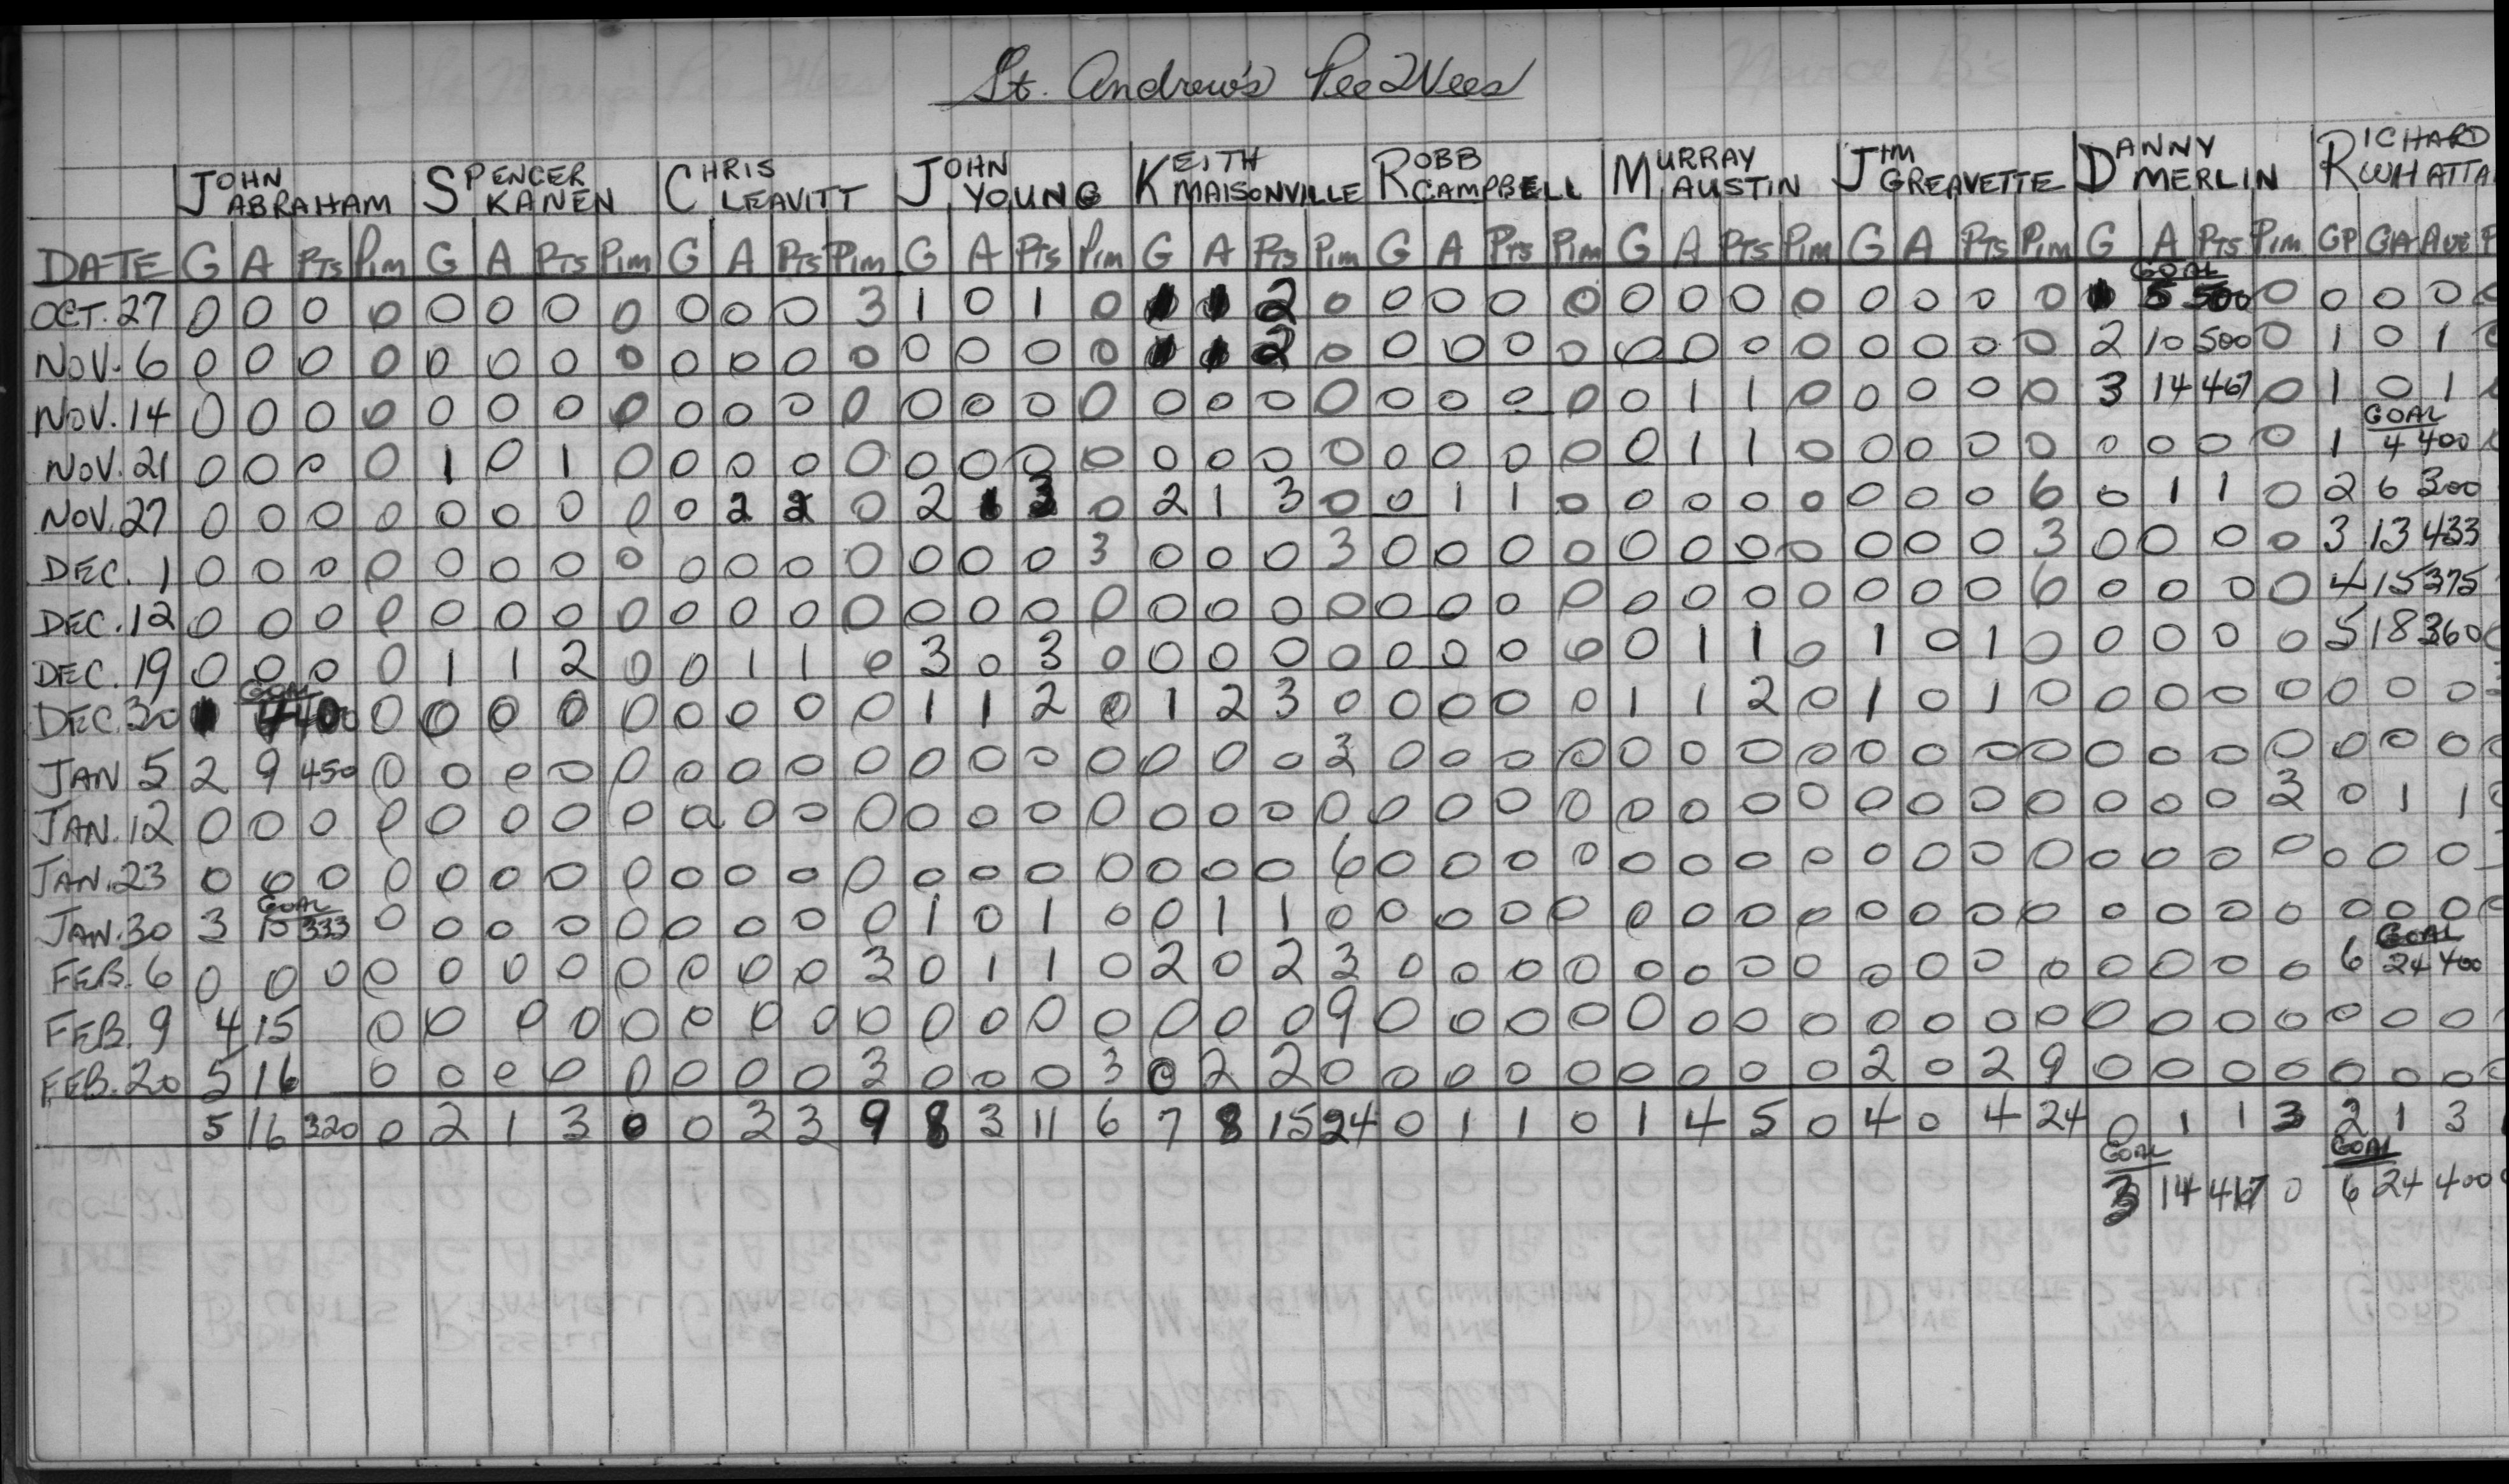 St. Andrew's Pee Wees
JOHN ABRAHAM SPENCER KANEN CHRIS LEAVITT JOHN YOUNG KEITH MAISONVILLE ROBB CAMPBELL MURRAY AUSTIN JIM GREAVETTE DANNY MERLIN RICHARD WHATTA
DATE G A PTS Pim G A PTS Pim G A PTS Pim G A PTS Pim G A PTS Pim G A PTS Pim G A PTS Pim G A PTS Pim G A PTS Pim GP GA AVE P
GOAL
OCT. 27 0 0 0 0 0 0 0 0 0 0 0 3 1 0 1 0 1 1 2 0 0 0 0 0 0 0 0 0 0 0 0 0 1 5 500 0 0 0 0
NOV. 6 0 0 0 0 0 0 0 0 0 0 0 0 0 0 0 0 1 1 2 0 0 0 0 0 0 0 0 0 0 0 0 0 2 10 500 0 1 0 1
NOV. 14 0 0 0 0 0 0 0 0 0 0 0 0 0 0 0 0 0 0 0 0 0 0 0 0 0 1 1 0 0 0 0 0 3 14 467 0 1 0 1
GOAL
NOV. 21 0 0 0 0 1 0 1 0 0 0 0 0 0 0 0 0 0 0 0 0 0 0 0 0 0 1 1 0 0 0 0 0 0 0 0 0 1 4 400
NOV. 27 0 0 0 0 0 0 0 0 0 2 2 0 2 1 3 0 2 1 3 0 0 1 1 0 0 0 0 0 0 0 0 6 0 1 1 0 2 6 300
DEC. 1 0 0 0 0 0 0 0 0 0 0 0 0 0 0 0 3 0 0 0 3 0 0 0 0 0 0 0 0 0 0 0 3 0 0 0 0 3 13 433
DEC. 12 0 0 0 0 0 0 0 0 0 0 0 0 0 0 0 0 0 0 0 0 0 0 0 0 0 0 0 0 0 0 0 6 0 0 0 0 4 15 375
DEC. 19 0 0 0 0 1 1 2 0 0 1 1 0 3 0 3 0 0 0 0 0 0 0 0 0 0 1 1 0 1 0 1 0 0 0 0 0 5 18 360
GOAL
DEC. 30 1 4 400 0 0 0 0 0 0 0 0 0 1 1 2 0 1 2 3 0 0 0 0 0 1 1 2 0 1 0 1 0 0 0 0 0 0 0 0
JAN 5 2 9 450 0 0 0 0 0 0 0 0 0 0 0 0 0 0 0 0 3 0 0 0 0 0 0 0 0 0 0 0 0 0 0 0 0 0 0 0
JAN. 12 0 0 0 0 0 0 0 0 0 0 0 0 0 0 0 0 0 0 0 0 0 0 0 0 0 0 0 0 0 0 0 0 0 0 0 3 0 1 1
JAN. 23 0 0 0 0 0 0 0 0 0 0 0 0 0 0 0 0 0 0 0 6 0 0 0 0 0 0 0 0 0 0 0 0 0 0 0 0 0 0 0
GOAL
JAN. 30 3 15 333 0 0 0 0 0 0 0 0 0 1 0 1 0 0 1 1 0 0 0 0 0 0 0 0 0 0 0 0 0 0 0 0 0 0 0 0
GOAL
FEB. 6 0 0 0 0 0 0 0 0 0 0 0 3 0 1 1 0 2 0 2 3 0 0 0 0 0 0 0 0 0 0 0 0 0 0 0 0 6 24 400
FEB. 9 4 15 0 0 0 0 0 0 0 0 0 0 0 0 0 0 0 0 9 0 0 0 0 0 0 0 0 0 0 0 0 0 0 0 0 0 0 0
FEB. 20 5 16 0 0 0 0 0 0 0 0 3 0 0 0 3 0 2 2 0 0 0 0 0 0 0 0 0 2 0 2 9 0 0 0 0 0 0 0
5 16 320 0 2 1 3 0 0 3 3 9 8 3 11 6 7 8 15 24 0 1 1 0 1 4 5 0 4 0 4 24 0 1 1 3 2 1 3
GOAL GOAL
3 14 467 0 6 24 400